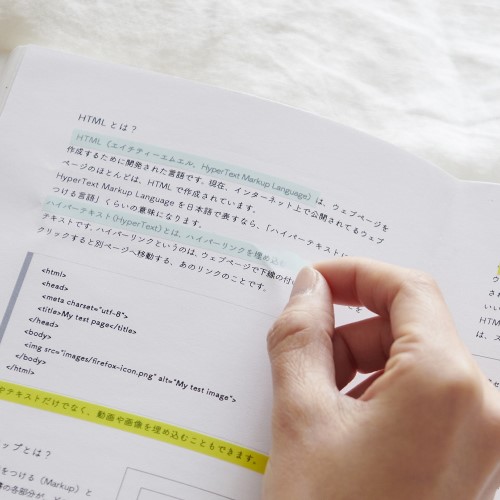 HTML とは？
HTML（エイチティーエムエル、HyperText Markup Language）は、ウェブページを
作成するために開発された言語です。現在、インターネット上で公開されてるウェブ
ページのほとんどは、HTML で作成されています。
HyperText Markup Language を日本語で表すなら、「ハイパーテキストに
つける言語」くらいの意味になります。
ハイパーテキスト(HyperText)とは、ハイパーリンクを埋め込
テキストです。ハイパーリンクというのは、ウェブページで下線の付い
クリックすると別ページへ移動する、あのリンクのことです。
<html>
<head>
<meta charset="utf-8">
<title>My test page</title>
</head>
<body>
<img src="images/firefox-icon.png" alt="My test image">
</body>
</html>
やテキストだけでなく、動画や画像を埋め込むこともできます。
ップとは？
をつける（Markup）と
の各部分が、
ウ
され
いる
HTM
は、ス